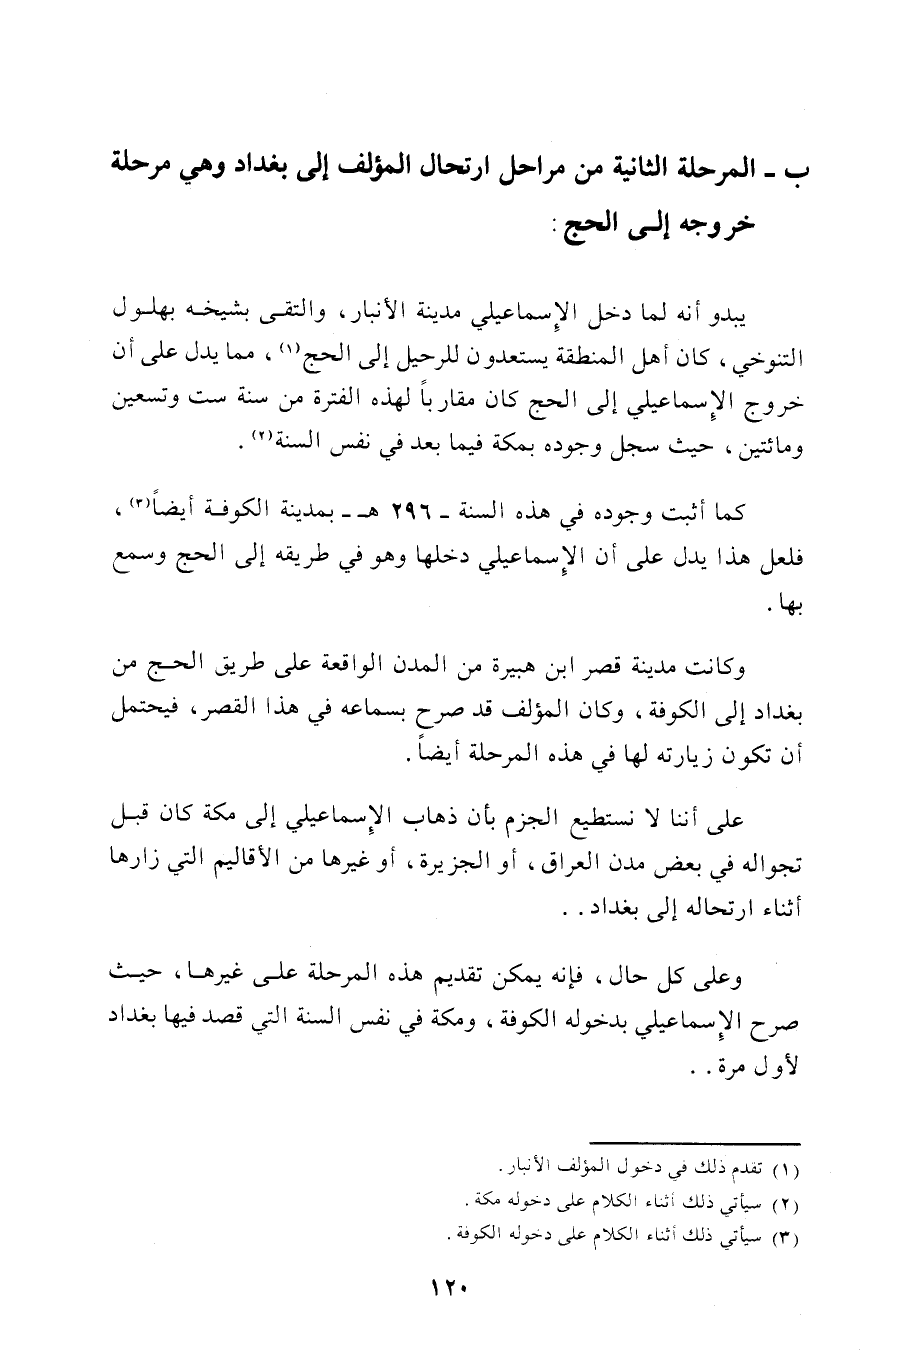 ب - المرحلة الثانية من مراحل ارتحال المؤلف إلى بغداد وهي مرحلة
خروجه إلى الحج :
يبدو أنه لما دخل الإسماعيلي مدينة الأنبار ، والتقى بشيخه بهلول
التنوخي ، كان أهل المنطقة يستعدون للرحيل إلى الحج(١) ، مما يدل على أن
خروج الإسماعيلي إلى الحج كان مقارباً لهذه الفترة من سنة ست وتسعين
ومائتين ، حيث سجل وجوده بمكة فيما بعد في نفس السنة(٢) .
كما أثبت وجوده في هذه السنة - ٢٩٦ هـ - بمدينة الكوفة أيضاً(٣) ،
فلعل هذا يدل على أن الإسماعيلي دخلها وهو في طريقه إلى الحج وسمع
بها .
وكانت مدينة قصر ابن هبيرة من المدن الواقعة على طريق الحج من
بغداد إلى الكوفة ، وكان المؤلف قد صرح بسماعه في هذا القصر ، فيحتمل
أن تكون زيارته لها في هذه المرحلة أيضاً .
على أننا لا نستطيع الجزم بأن ذهاب الإسماعيلي إلى مكة كان قبل
تجواله في بعض مدن العراق ، أو الجزيرة ، أو غيرها من الأقاليم التي زارها
أثناء ارتحاله إلى بغداد . .
وعلى كل حال ، فإنه يمكن تقديم هذه المرحلة على غيرها ، حيث
صرح الإسماعيلي بدخوله الكوفة ، ومكة في نفس السنة التي قصد فيها بغداد
لأول مرة . .
(١) تقدم ذلك في دخول المؤلف الأنبار .
(٢) سيأتي ذلك أثناء الكلام على دخوله مكة .
(٣) سيأتي ذلك أثناء الكلام على دخوله الكوفة .
١٢٠